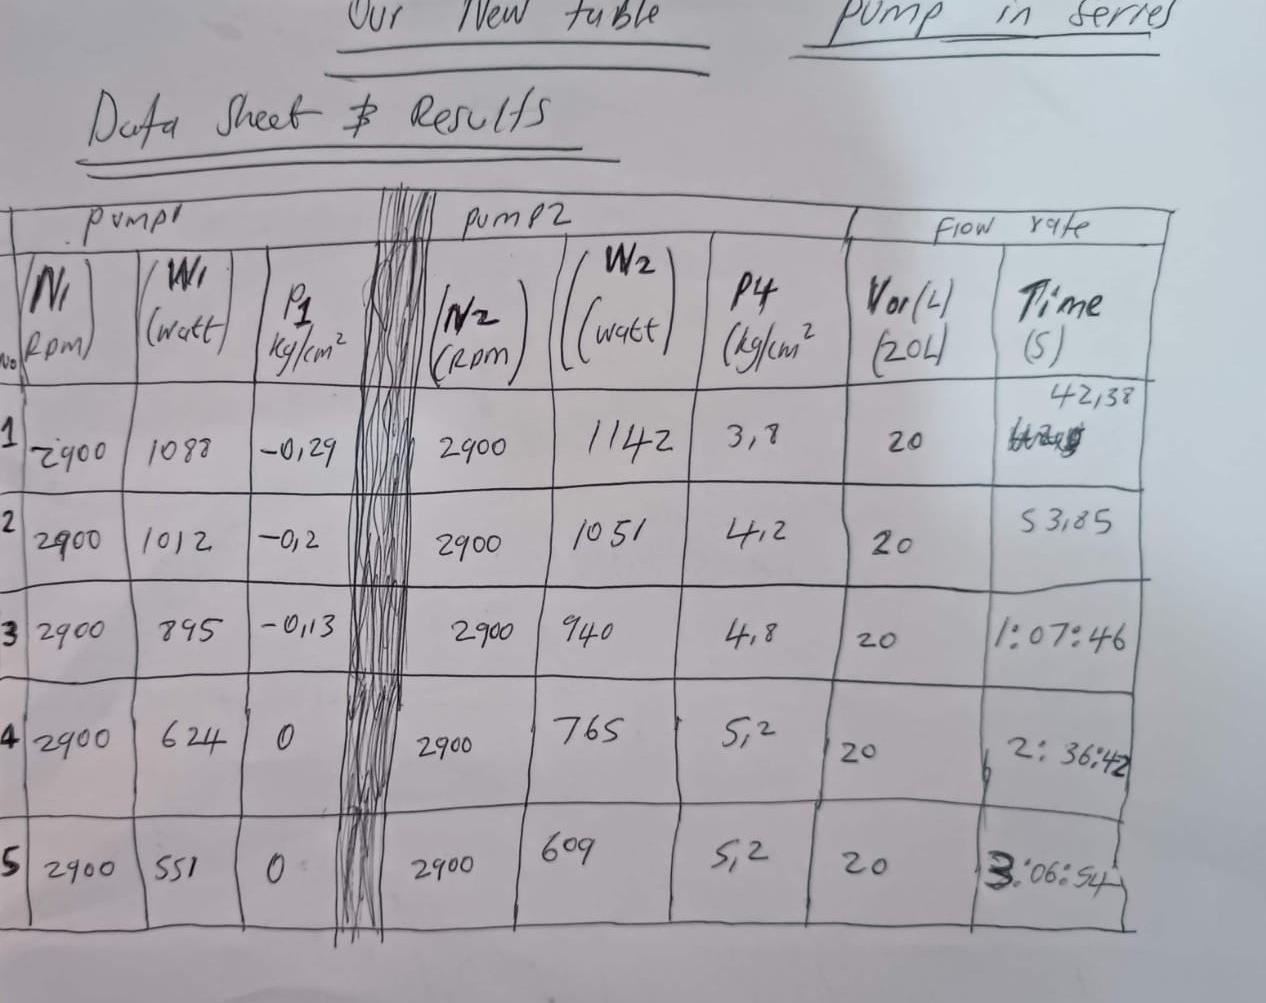 Our New table pump in series
Data sheet & Results
pump1 pump2 Flow rate
No N1 (Rpm) W1 (watt) P1 kg/cm² N2 (RPM) W2 (watt) P4 (kg/cm² Vor(L) (20L) Time (S)
1 2900 1088 -0,29 2900 1142 3,8 20 42,38
2 2900 1012 -0,2 2900 1051 4,2 20 53,85
3 2900 895 -0,13 2900 940 4,8 20 1:07:46
4 2900 624 0 2900 765 5,2 20 2:36:42
5 2900 551 0 2900 609 5,2 20 3:06:54